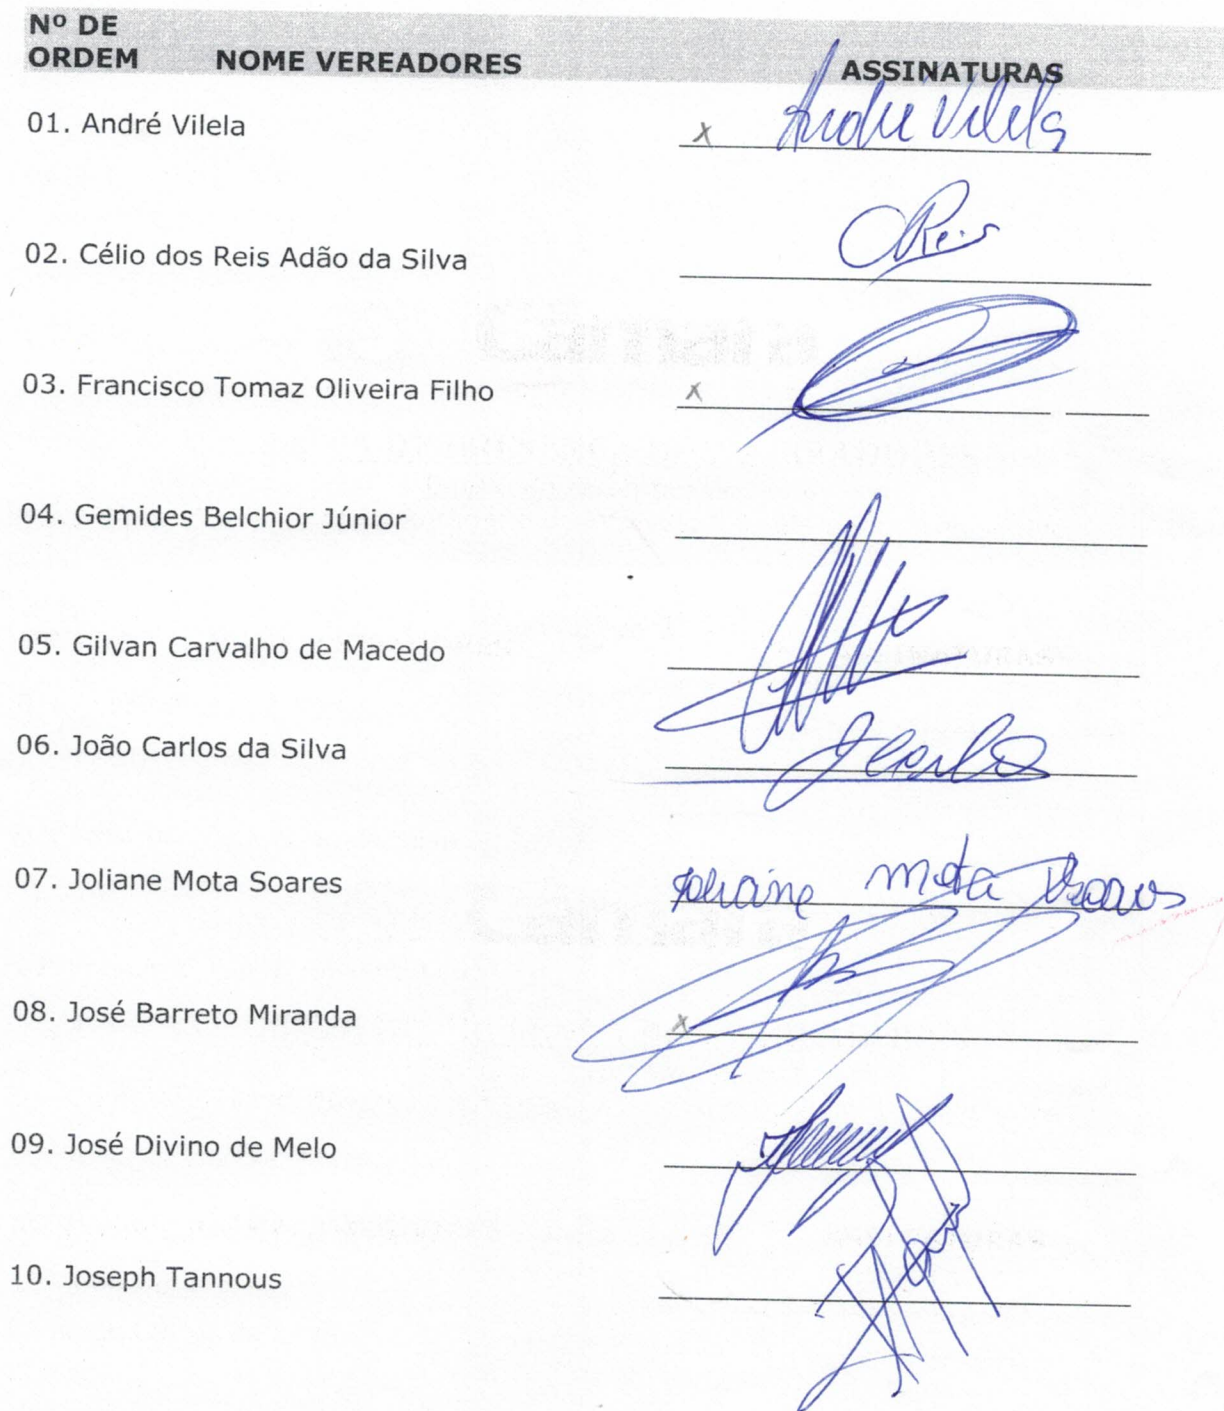 Nº DE
ORDEM NOME VEREADORES ASSINATURAS
01. André Vilela x André Vilela
02. Célio dos Reis Adão da Silva CReis
03. Francisco Tomaz Oliveira Filho x
04. Gemides Belchior Júnior
05. Gilvan Carvalho de Macedo
06. João Carlos da Silva
07. Joliane Mota Soares Joliane Mota Soares
08. José Barreto Miranda x
09. José Divino de Melo
10. Joseph Tannous